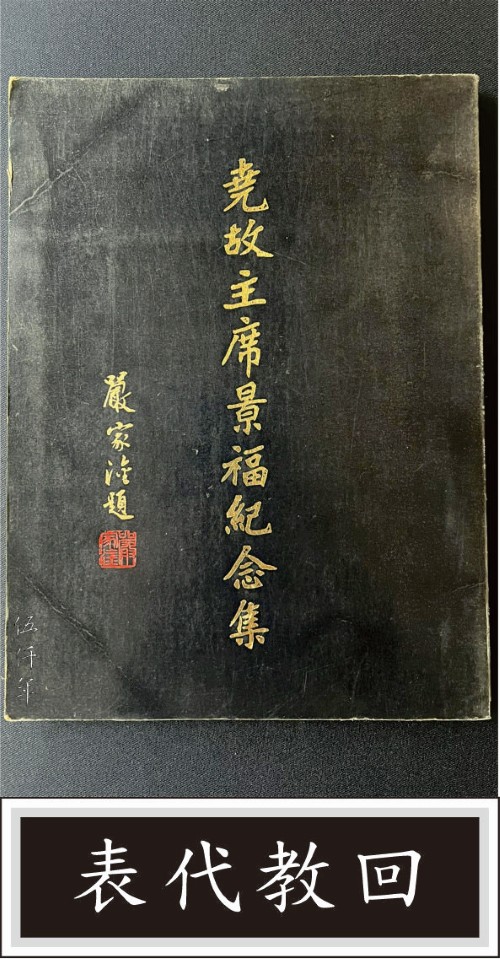 堯故主席景福紀念集
嚴家淦題
伍仟年
回教代表